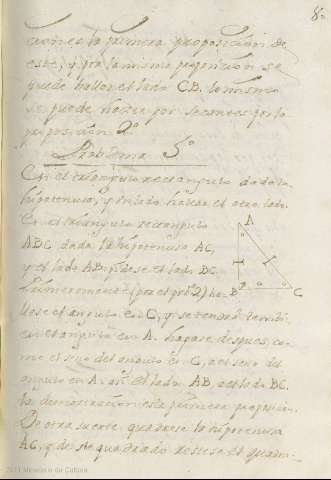 8
cion es la primera proposicion de
este; y por la misma proposicion se
puede hallar el lado CB. lo mismo
se puede hacer por secantes por la
proposicion 2ª
Problema 5º
En el triangulo rectangulo dada la
hipotenusa, y un lado hallar el otro lado.
En el triangulo rectangulo
ABC dada la hipotenusa AC,
y el lado AB pidese el lado BC.
Primeramente (por el prª 2) ha-
llese el angulo en C, y se tendrá tambi-
en el angulo en A. hagase despues, co-
mo el seno del angulo en C, al seno del
angulo en A: asi el lado AB, al lado BC.
la demostracion es la primera proposicion.
De otra suerte quadrese la hipotenusa
AC, y de este quadrado restese el quadra-
A
B
C
2021 Ministerio de Cultura